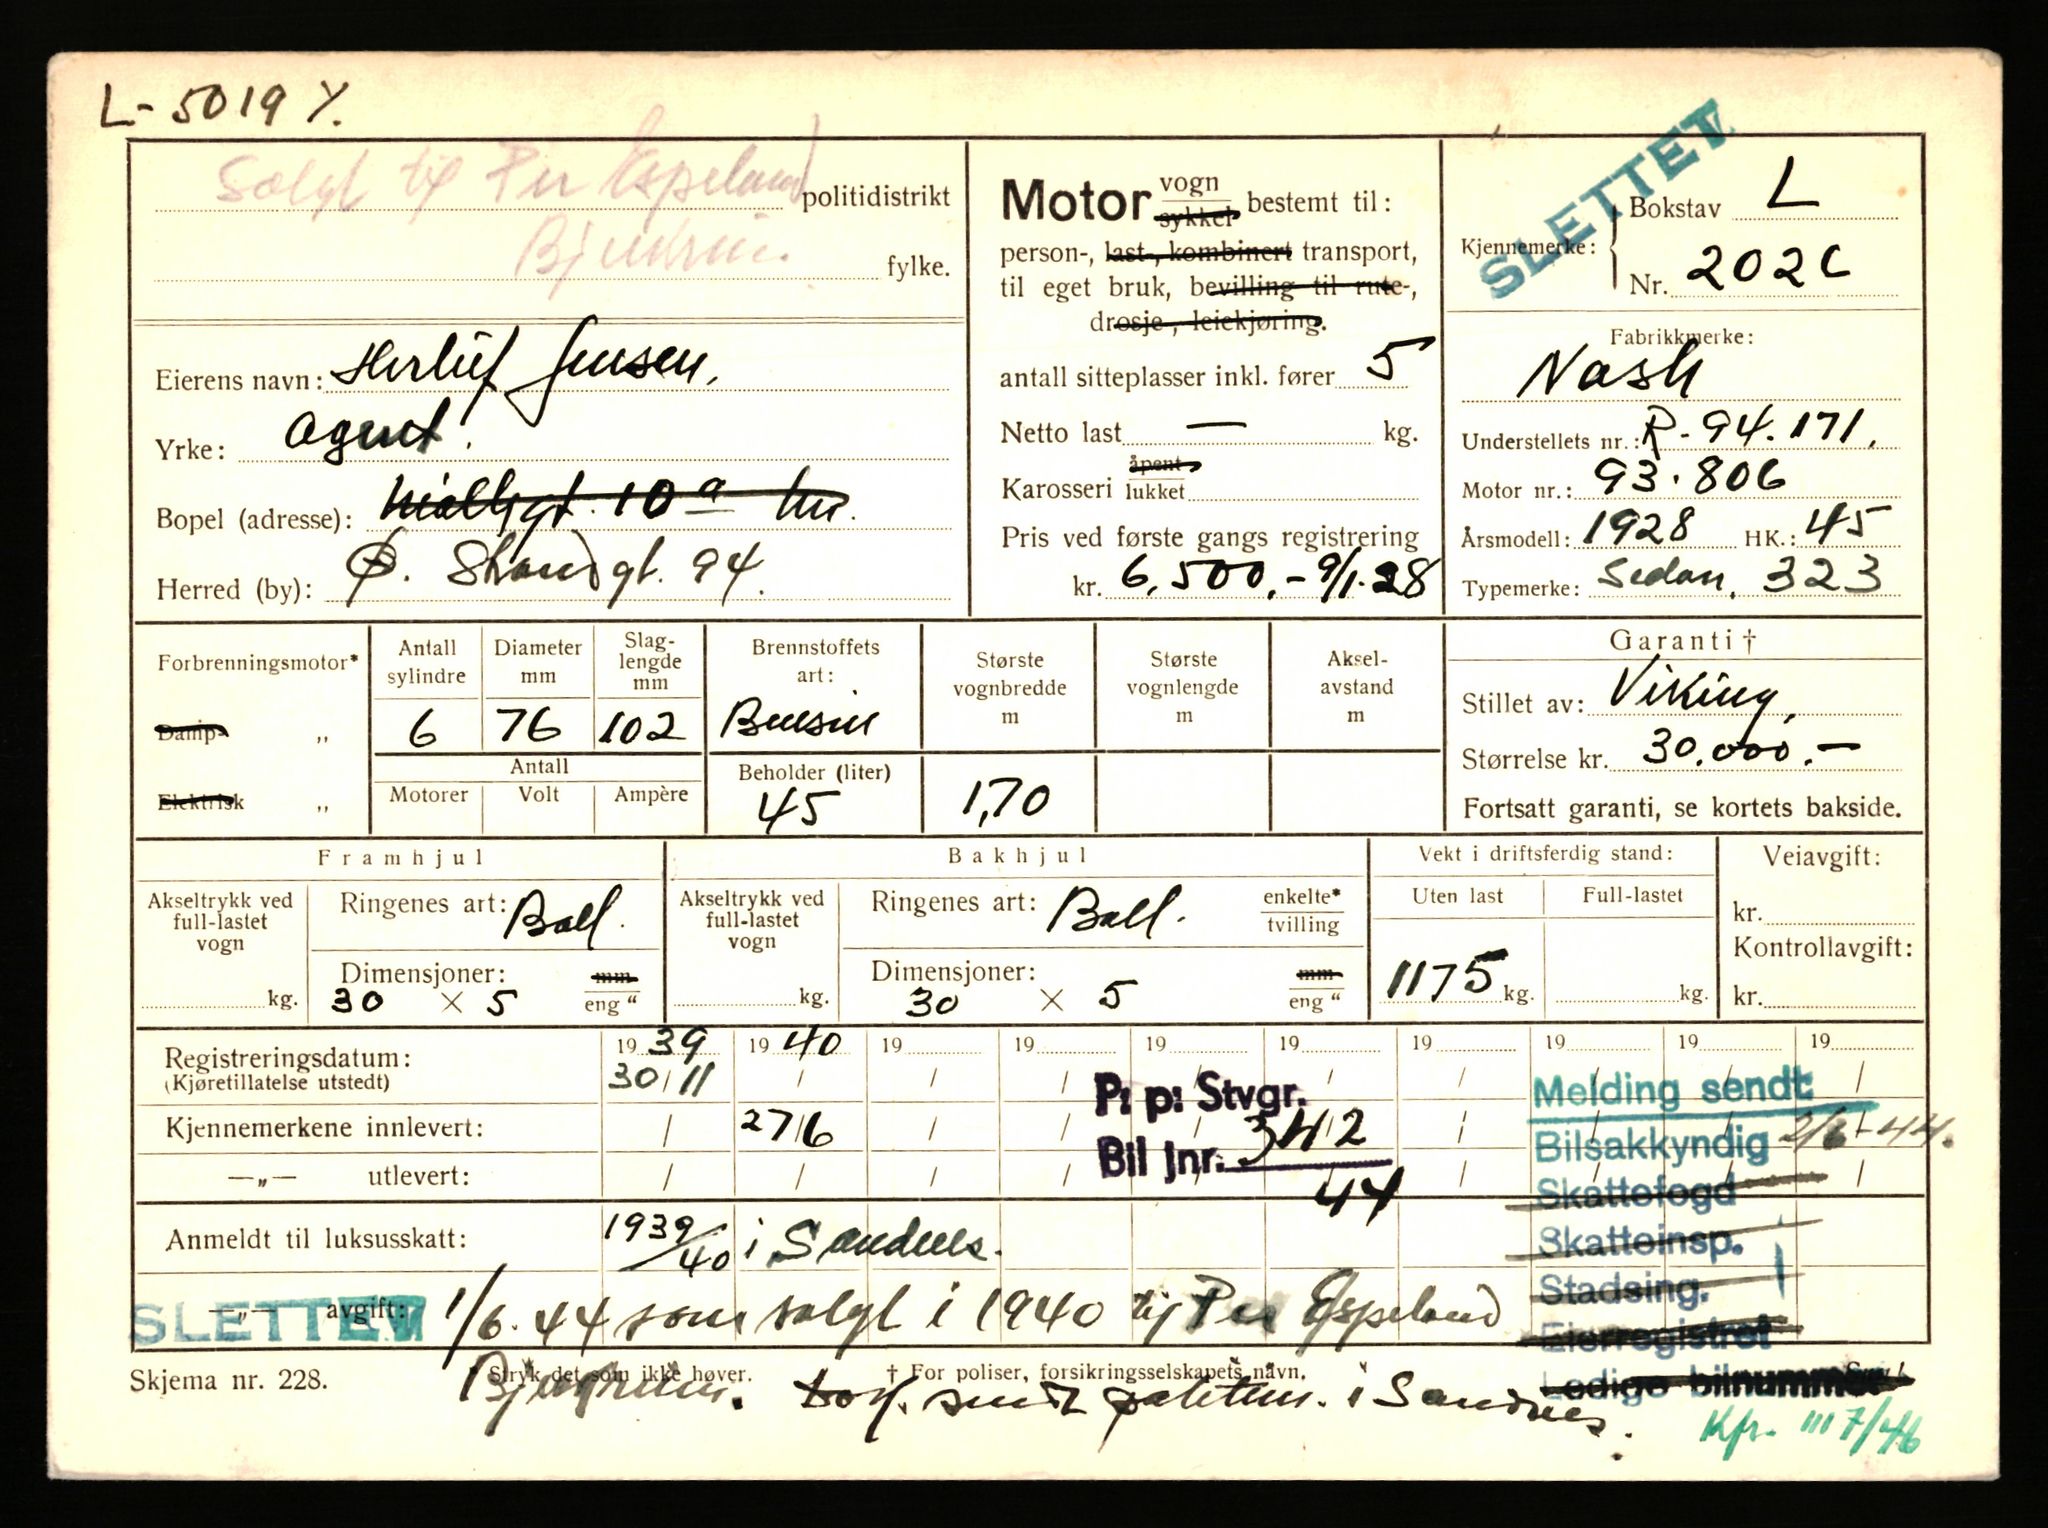 L-5019 Y.
Solgt til Per Espeland politidistrikt
fylke.
Eierens navn: Herlief Jensen.
Yrke: Agent!
Bopel (adresse): 10 a
Herred (by): Ø. Strandgt. 94.
Motor vogn sykkel bestemt til:
person-, last-, kombinert transport,
til eget bruk, bevilling til rute-,
drosje-, leiekjøring.
antall sitteplasser inkl. fører 5
Netto last — kg.
Karosseri åpent lukket
Pris ved første gangs registrering
kr. 6,500,- 9/1-28
SLETTET
Kjennemerke: Bokstav L
Nr. 2026
Fabrikkmerke:
Nash
Understellets nr.: R-94.171.
Motor nr.: 93.806
Årsmodell: 1928 HK.: 45
Typemerke: Sedan, 323
Forbrenningsmotor*
Damp- „
Elektrisk „
Antall sylindre
6
Diameter mm
76
Slag-lengde mm
102
Antall
Motorer Volt Ampère
Brennstoffets art:
Bensin
Beholder (liter)
45
Største vognbredde m
1,70
Største vognlengde m
Aksel-avstand m
Garanti †
Stillet av: Viking,
Størrelse kr. 30.000.—
Fortsatt garanti, se kortets bakside.
Framhjul
Akseltrykk ved full-lastet vogn
kg.
Ringenes art: Ball.
Dimensjoner: mm
30 × 5 eng "
Bakhjul
Akseltrykk ved full-lastet vogn
kg.
Ringenes art: Ball. enkelte* tvilling
Dimensjoner: mm
30 × 5 eng "
Vekt i driftsferdig stand:
Uten last Full-lastet
1175 kg. kg.
Veiavgift:
kr.
Kontrollavgift:
kr.
Registreringsdatum: 19 39 19 40 19 19 19 19 19 19 19 19
(Kjøretillatelse utstedt) 30/11 / / / / / / / / /
Kjennemerkene innlevert: / 27/6 / / / / / / / /
—„— utlevert: / / / / / / / / / /
P: p: Stvgr.
Bil jnr. 342
44
Melding sendt
Bilsakkyndig 2/6-44.
Skattefogd
Skatteinsp.
Stadsing.
Eierregistret
Ledige bilnummer
Anmeldt til luksusskatt: 1939/40 i Sandnes.
—„— avgift: SLETTET 1/6.44 som solgt i 1940 til Per Espeland
Bjerkreim. sendt politim. i Sandnes.
Skjema nr. 228. * Stryk det som ikke høver. † For poliser, forsikringsselskapets navn.
Kfr. III 7/46